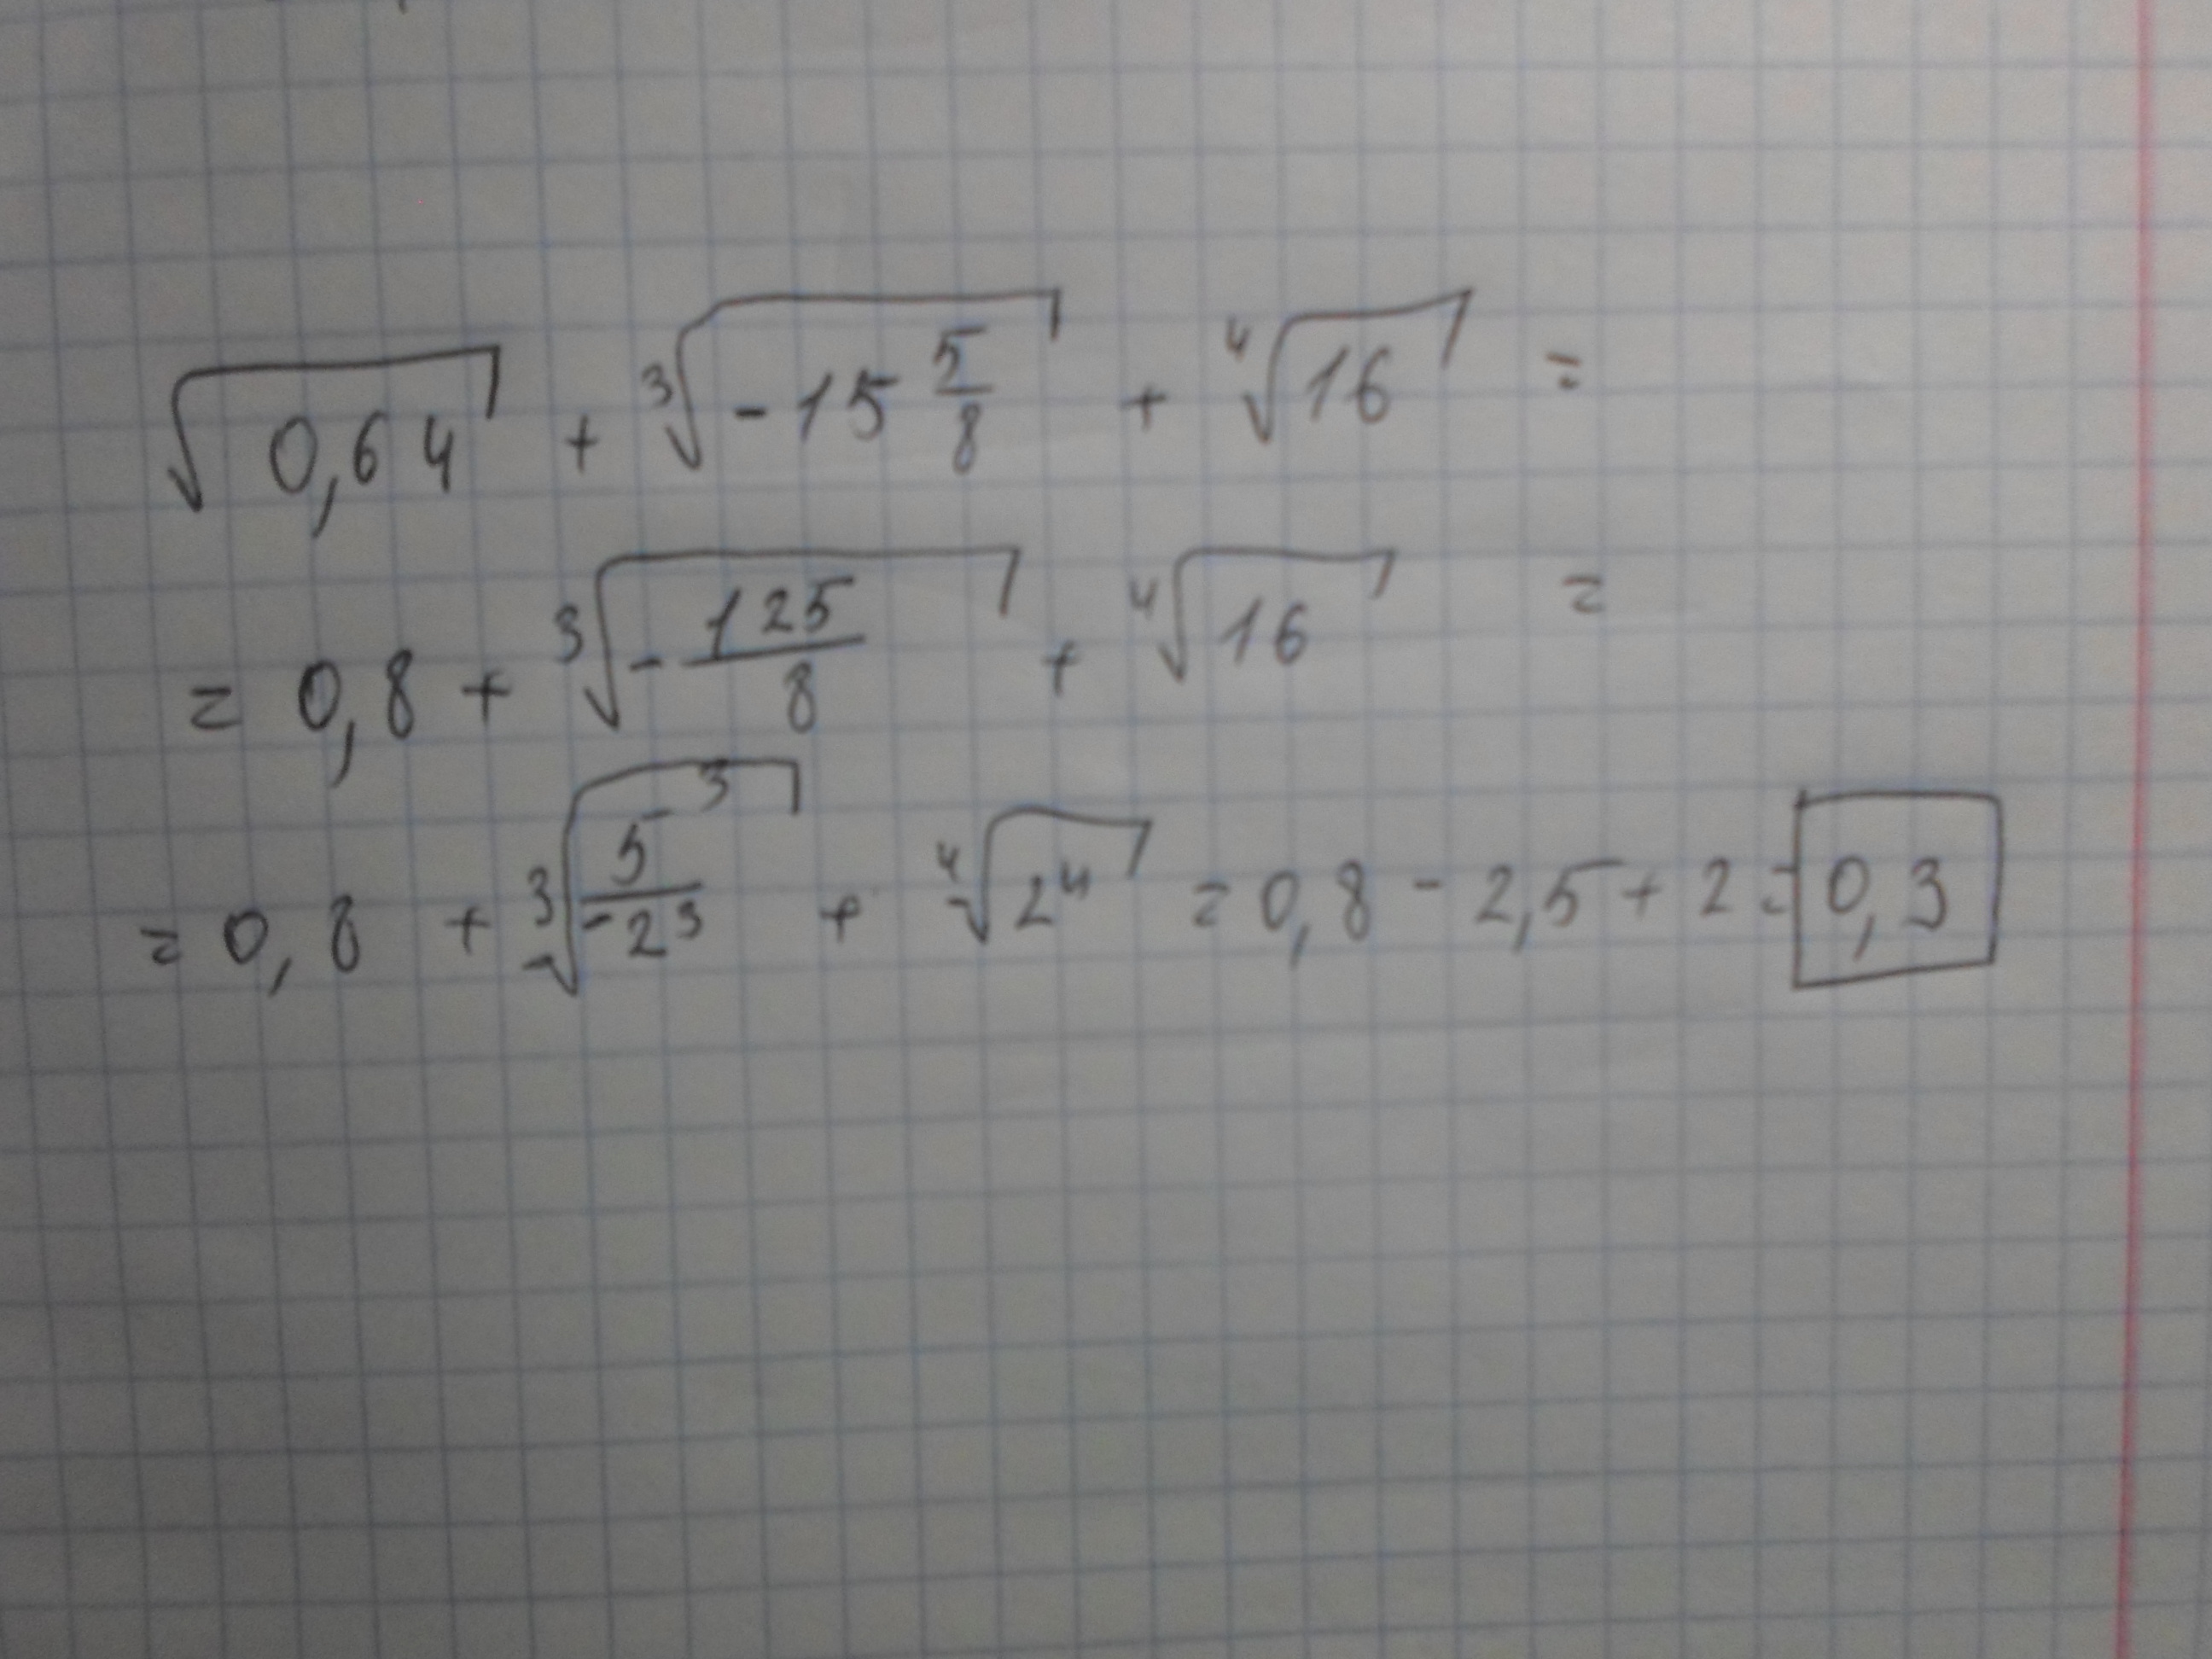 √0,64 + ³√(-15 5/8) + ⁴√16 =
= 0,8 + ³√(-125/8) + ⁴√16 =
= 0,8 + ³√(5³/-2³) + ⁴√2⁴ = 0,8 - 2,5 + 2 = 0,3